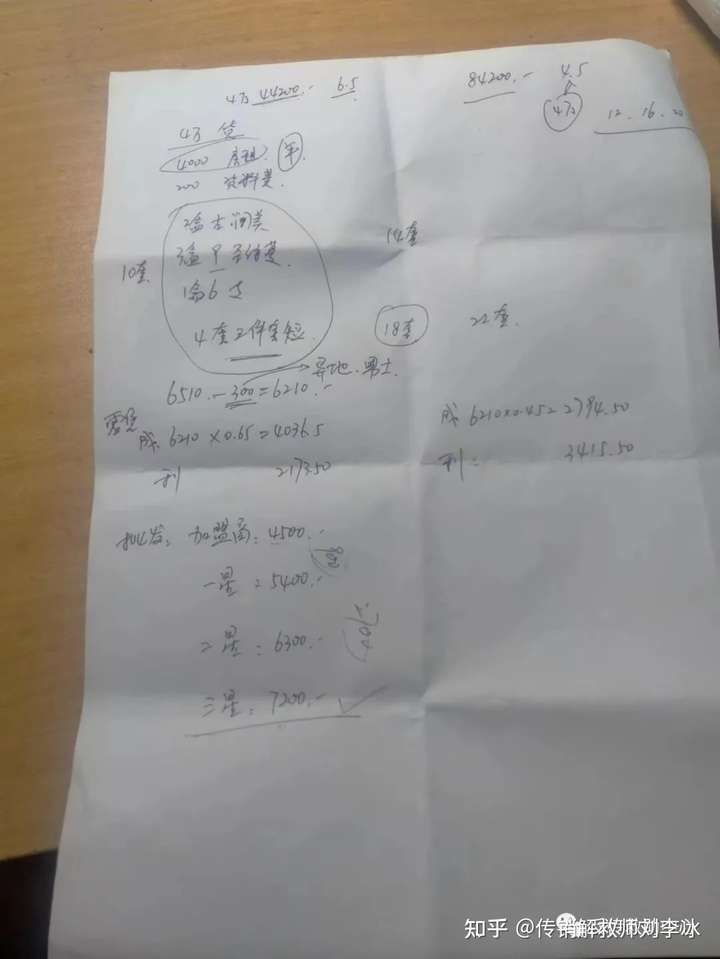 4万 44200.- 6.5
84200.- 4.5
4万
12. 16. 20
4万 货
4000 房租 年.
200 资料费.
10套.
14套
1盒6支
4套三件套短.
18套
22套.
6510.-300=6210.-
异地.男士.
零售
成 6210×0.65=4036.5
利 2173.50
成 6210×0.45=2794.50
利: 3415.50
批发: 加盟商: 4500.-
一星: 5400.-
二星: 6300.-
三星: 7200.-
知乎 @传销解救师刘李冰